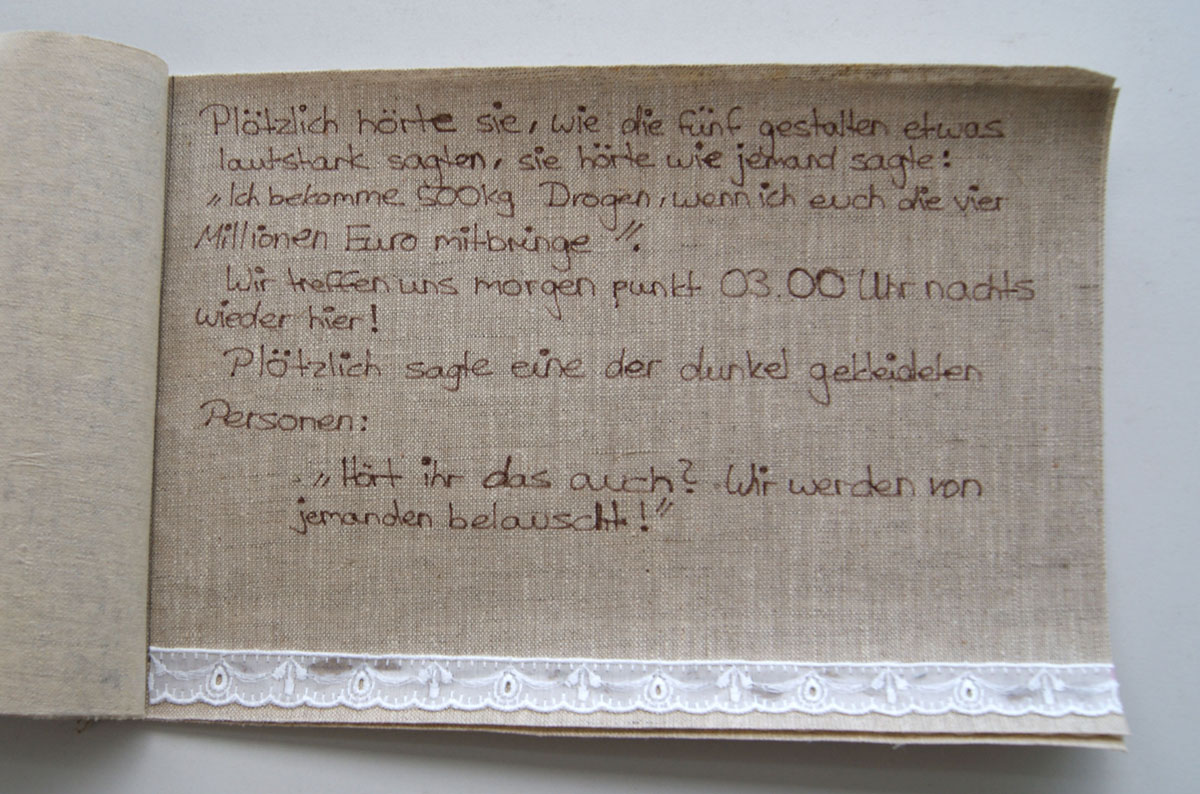 Plötzlich hörte sie, wie die fünf gestalten etwas
lautstark sagten, sie hörte wie jemand sagte:
„Ich bekomme 500kg Drogen, wenn ich euch die vier
Millionen Euro mitbringe".
Wir treffen uns morgen punkt 03.00 Uhr nachts
wieder hier!
Plötzlich sagte eine der dunkel gekleideten
Personen:
„Hört ihr das auch? Wir werden von
jemanden belauscht!"